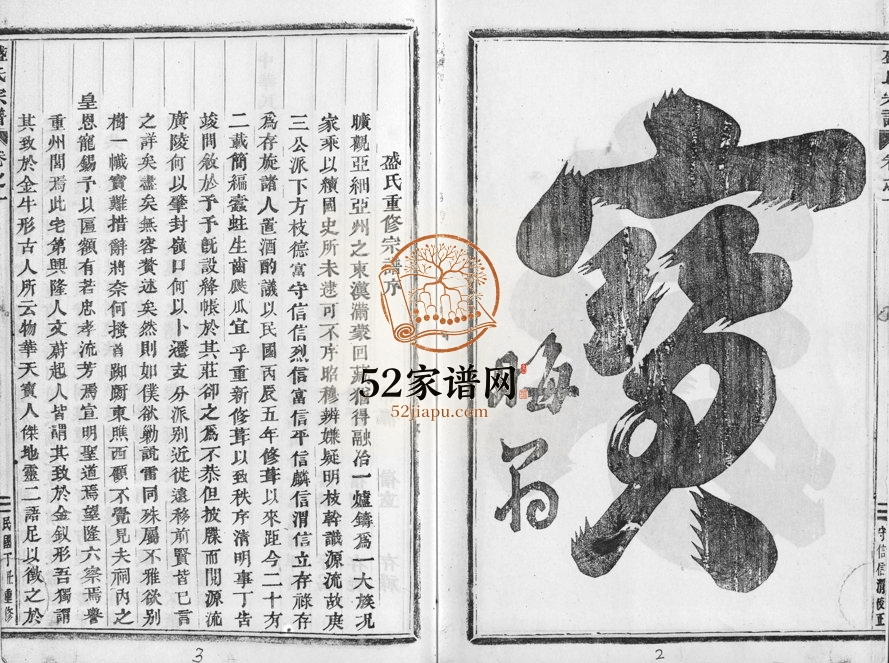 寶
晦翁
盛氏宗譜
守信信渭校正
2
盛氏重修宗譜序
曠觀亞細亞州之東漢滿蒙回
得融洽一爐鑄為一大族况
家乘以續國史所未逮可不序昭穆辨嫌疑明枝幹識源流故庚
三公派下方枝德富守信信烈信富信平信麟信渭信立存祿存
為存旋諸人置酒酌議以民國丙辰五年修葺以來距今二十有
二載簡編蠹蛀生齒
瓜宜乎重新修葺以致秩序清明事丁告
竣問敘於予予既設絳帳於其莊卻之為不恭但披牒而閱源流
廣陵何以肇封嶺口何以卜遷支分派別近徙遠移前賢皆已言
之詳矣盡矣無容贅述矣然則如僕欲勦說雷同殊屬不雅欲別
樹一幟實難措辭將奈何撥首踟躕東瞧西顧不覺見夫祠內之
皇恩寵錫予以匾額有若忠孝流芳焉宣明聖道焉望隆六察焉譽
重州閭焉此宅第興隆人文蔚起人皆謂其致於金釵形吾獨謂
其致於金牛形古人所云物華天寶人傑地靈二語足以徵之於
盛氏宗譜
民國丁丑重修
3
52家谱网
52jiapu.com